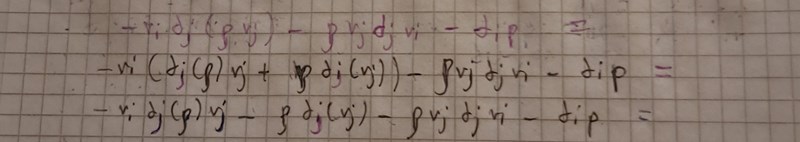 -vi ∂j(ρ vj) - ρ vj ∂j vi - ∂i p. =
-vi (∂j(ρ) vj + ρ ∂j(vj)) - ρ vj ∂j vi - ∂i p =
-vi ∂j(ρ) vj - ρ ∂j(vj) - ρ vj ∂j vi - ∂i p =